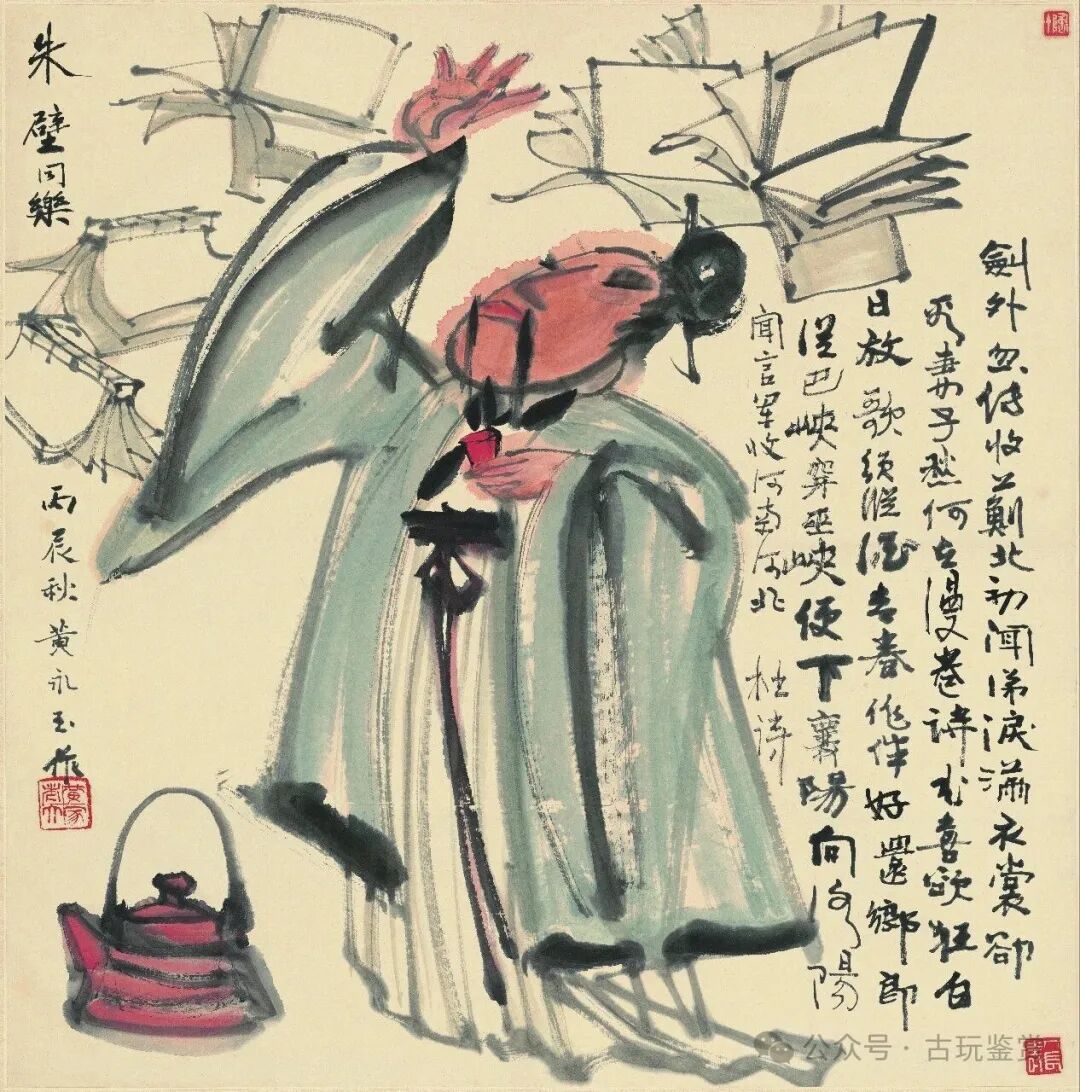 劍外忽传收薊北初闻涕淚满衣裳卻
看妻子愁何在漫卷诗书喜欲狂白
日放歌须縱酒青春作伴好還鄉即
從巴峽穿巫峽便下襄陽向洛陽
闻官军收河南河北 杜诗
朱璧同樂
丙辰秋黄永玉作
黄家老大
公众号·古玩鉴赏